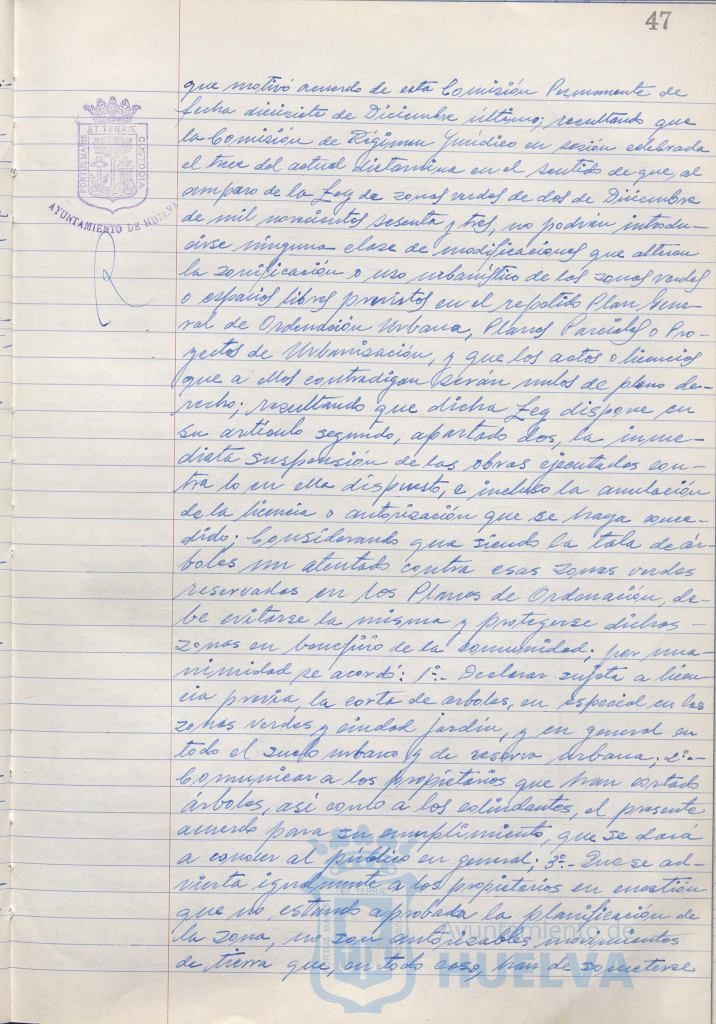 47
PORTUS MARIS
ET TERRÆ
CUSTODIA
AYUNTAMIENTO DE HUELVA
que motivó acuerdo de esta Comisión Permanente de
fecha diecisiete de Diciembre último; resultando que
la Comisión de Régimen Jurídico en sesión celebrada
el trece del actual dictamina en el sentido de que, al
amparo de la Ley de zonas verdes de dos de Diciembre
de mil novecientos sesenta y tres, no podrán introdu-
cirse ninguna clase de modificaciones que alteren
la zonificación o uso urbanístico de las zonas verdes
o espacios libres previstos en el repetido Plan Gene-
ral de Ordenación Urbana, Planes Parciales o Pro-
yectos de Urbanización, y que los actos o licencias
que a ellos contradigan serán nulos de pleno de-
recho; resultando que dicha Ley dispone en
su artículo segundo, apartado dos, la inme-
diata suspensión de las obras ejecutadas con-
tra lo en ella dispuesto, e incluso la anulación
de la licencia o autorización que se haya conce-
dido; Considerando que siendo la tala de ár-
boles un atentado contra esas zonas verdes
reservadas en los Planes de Ordenación, de-
be evitarse la misma y protegerse dichas
zonas en beneficio de la comunidad; por una-
nimidad se acordó: 1º.- Declarar sujeta a licen-
cia previa, la corta de arboles, en especial en las
zonas verdes y ciudad jardín, y en general en
todo el suelo urbano y de reserva urbana; 2º.-
Comunicar a los propietarios que han cortado
árboles, así como a los colindantes, el presente
acuerdo para su cumplimiento, que se dará
a conocer al público en general; 3º.- Que se ad-
vierta igualmente a los propietarios en cuestión
que no, estando aprobada la planificación de
la zona, no son autorizables movimientos
de tierra que, en todo caso, han de someterse
Ayuntamiento de
HUELVA